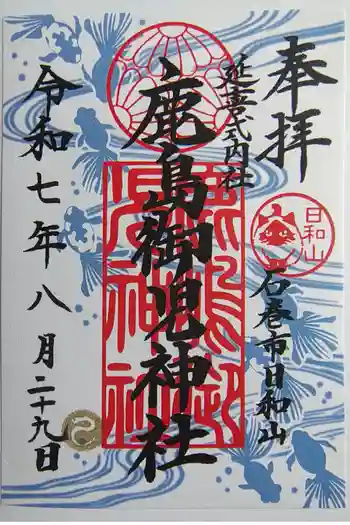 奉拝
延喜式内社
日和山
石巻市日和山
鹿島御児神社
令和七年八月二十九日